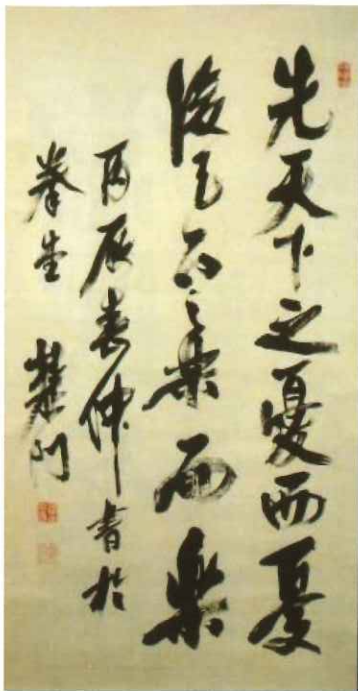 先天下之憂而憂
後天下之樂而樂
丙辰春仲書於